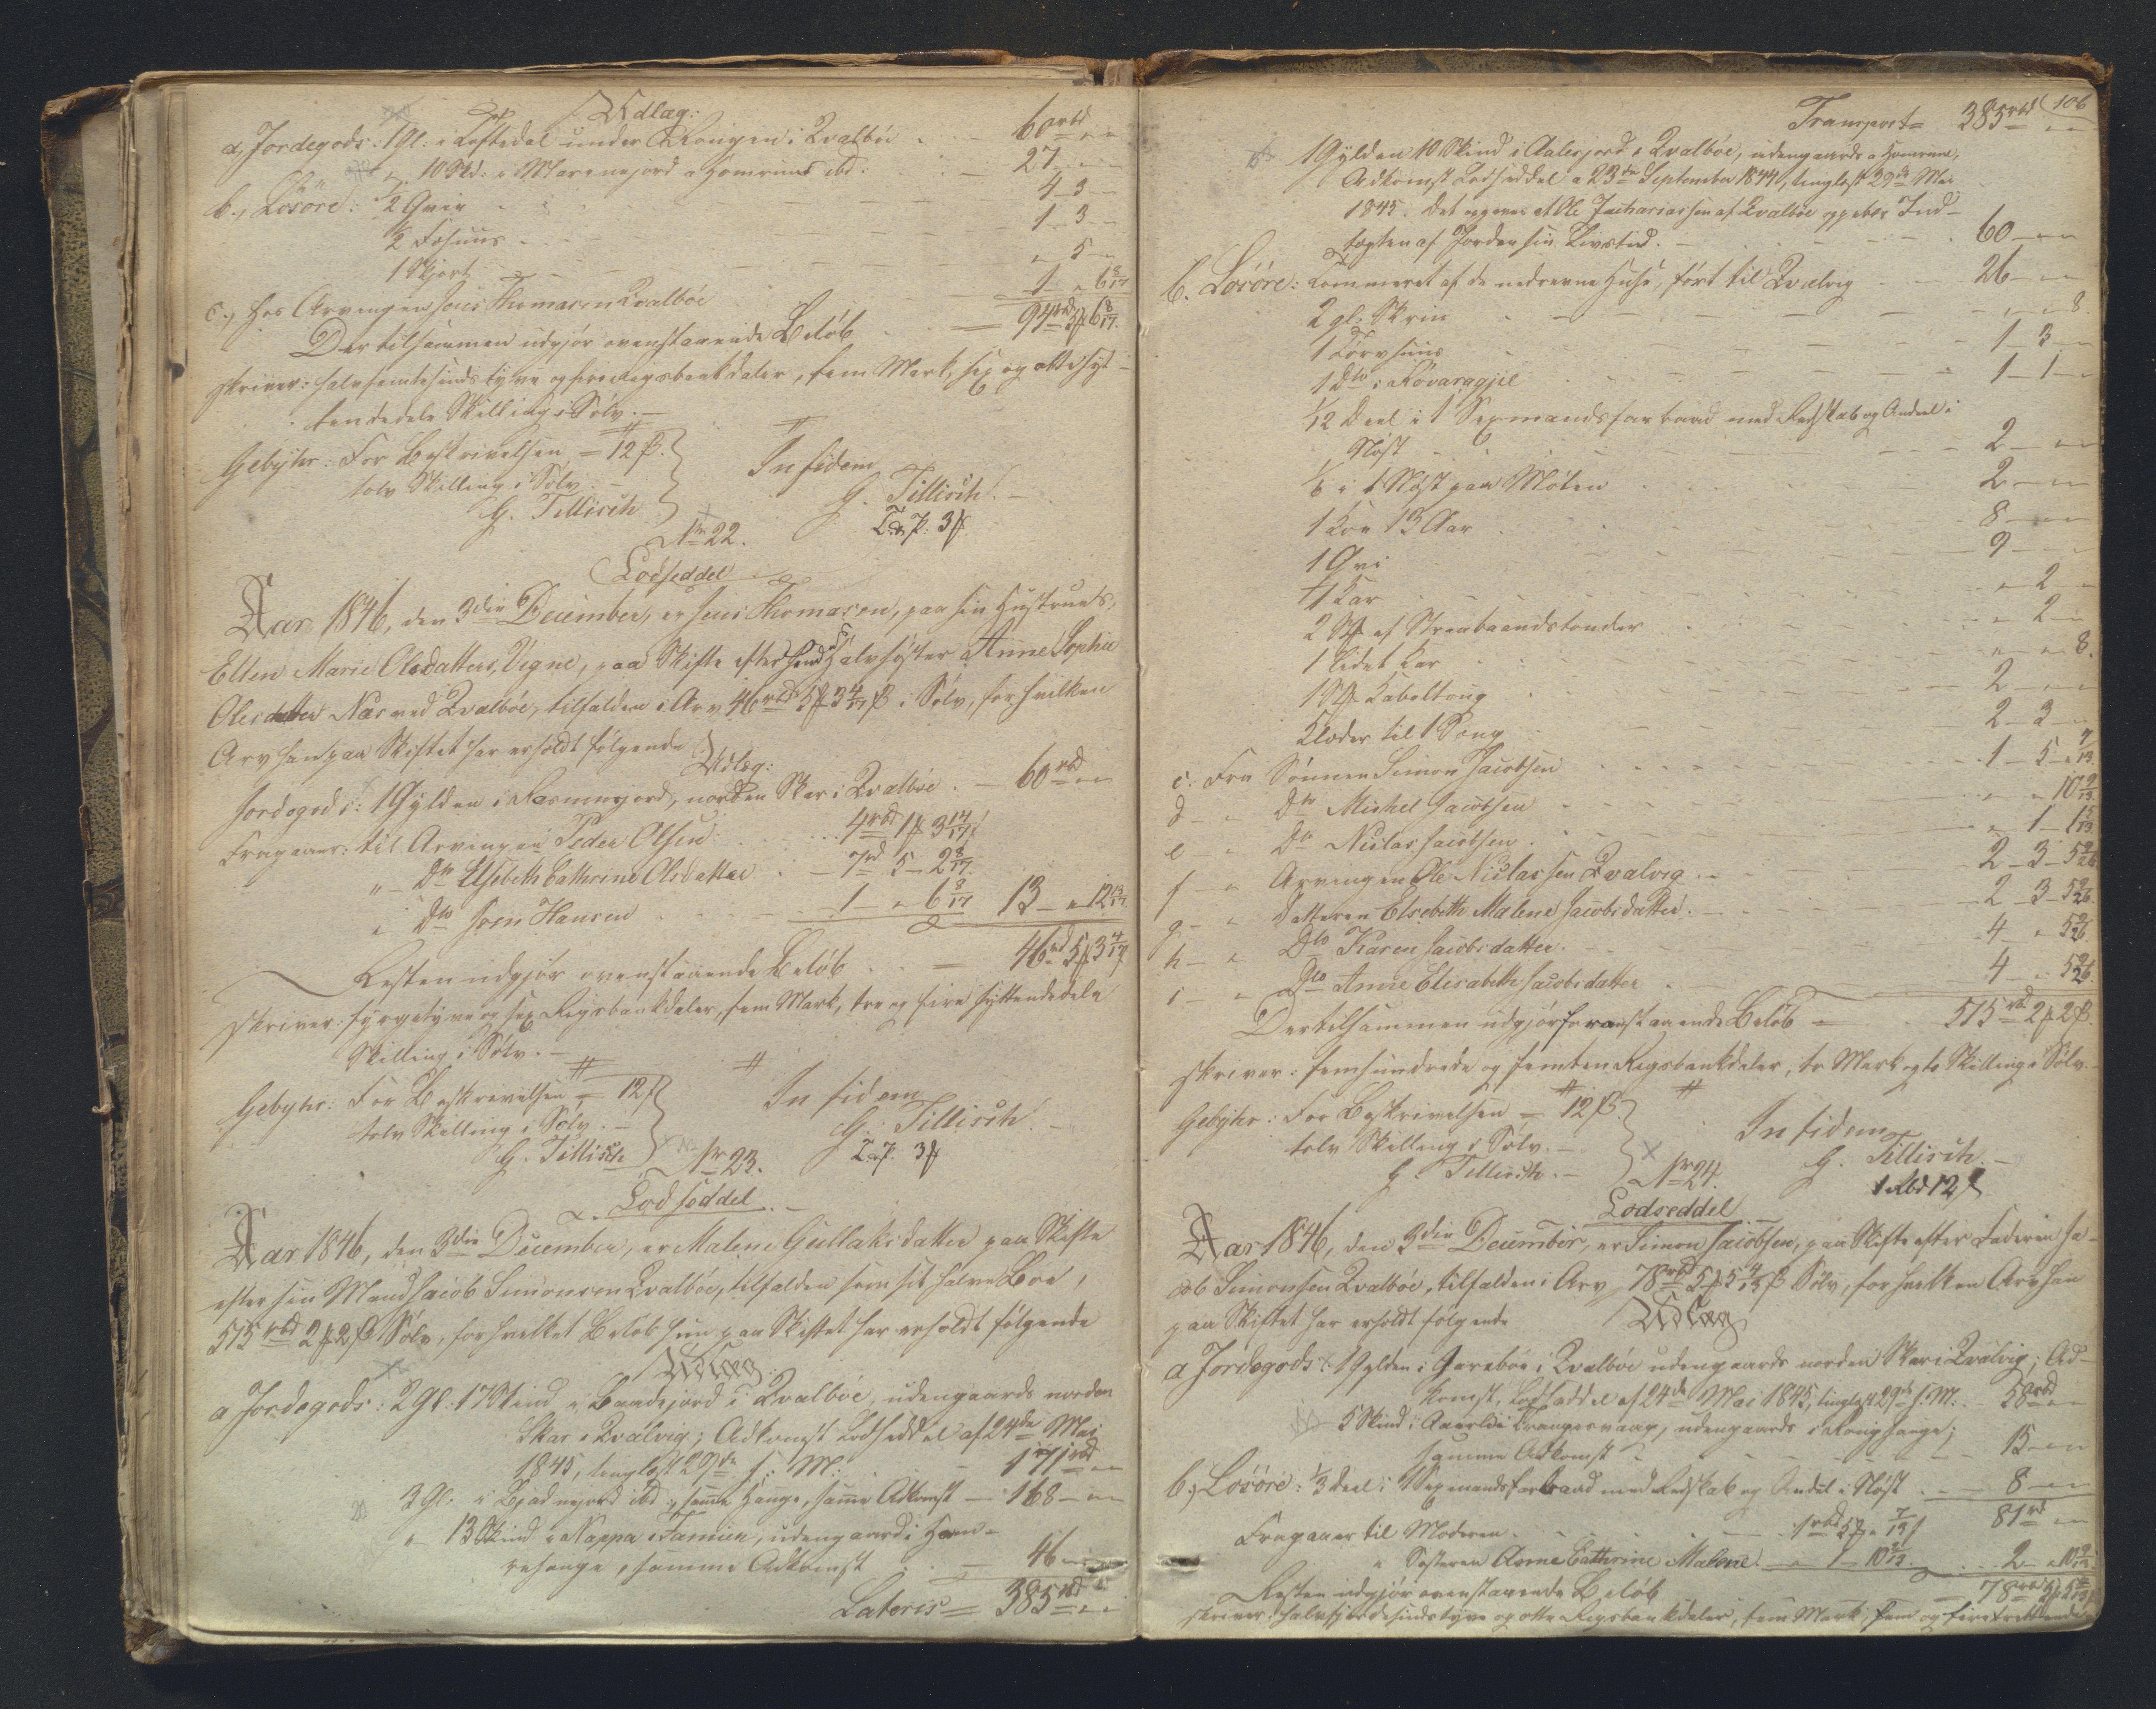 Udlæg:
a, Jordegods: 1 Gl: i Toftedal under Kongen i Qvalböe - 60 rbd „ „
„ 10 Skd: i Marknejord a Homrene ibd. - 27 „ „
b., Lösöre: 1/2 Qvie - 4 3 „
1/2 Fæhuus - 1 3 „
1 Skjort - „ 5 „
c., hos Arvingen Joen Thomasen Qvalböe - 1 „ 6 8/17
Der tilsammen udgjör ovenstaaende Belöb = 94 rbd 5 ℳ 6 8/17.
skriver: halvfemtesindstyve og fire Rigsbankdaler, fem Mark, sex og otte syt-
tendedele Skilling i Sölv. -
Gebyhr: For Beskrivelsen = 12 ß.
tolv Skilling i Sölv. -
G. Tillisch
In fidem
G. Tillisch. -
T. P. 3 ℳ
Nr 22.
Lodseddel
Aar 1846, den 3die December, er Joen Thomasen, paa sin Hustrues,
Ellen Marie Olesdatters, Vegne, paa Skifte efter hendes Halvsöster Anne Sophie
Olesdatter Næs ved Qvalböe, tilfalden i Arv 46 rbd 5 ℳ 3 4/17 ß i Sölv, for hvilken
Arv han paa Skiftet har erholdt fölgende
Udlæg:
Jordegods: 1 Gylden i Rasmusjord, norden Skar i Qvalböe. - 60 rbd „ „
Fragaaer: til Arvingen Peder Olsen - 4 rbd 1 ℳ 3 14/17 ß
„ - Dto Elsebeth Cathrine Olesdatter - 7 rd 5 - 2 8/17.
„ Dto Joen Hansen - 1 „ 6 8/17 13 - „ 12 13/17
Resten udgjör ovenstaaende Belöb = 46 rbd 5 ℳ 3 4/17
skriver: fyrgetyve og sex Rigsbankdaler, fem Mark, tre og fire syttendedele
Skilling i Sölv. -
Gebyhr: For Beskrivelsen = 12 ß
tolv Skilling i Sölv. -
G. Tillisch
In fidem
G. Tillisch. -
T. P. 3 ℳ
Nr 23.
Lodseddel. -
Aar 1846, den 3die December, er Malene Gullaksdatter paa Skifte
efter sin Mand Jacob Simonsen Qvalböe, tilfalden som sit halve Boe,
515 rbd 2 ℳ 2 ß Sölv, for hvilket Belöb hun paa Skiftet har erholdt fölgende
Udlæg
a Jordegods: 2 Gl: 17 Skind i Baadejord i Qvalböe, udengaards norden
Skar i Qvalvig; Adkomst Lodseddel af 24de Mai
1845, tinglæst 29de s: M: - 171 rbd „ „
3 Gl. i Bjadnejord ibd., samme Hauge, samme Adkomst - 168 „ „
„ 13 Skind i Nappa i Famien, udengaards i Hom-
rehauge, samme Adkomst - 46 „ „
Lateris = 385 rbd „ „
106
Transport = 385 rbd „ „
1 Gylden 10 Skind i Aalesjord i Qvalböe, udengaards a Homrene,
Adkomst Lodseddel a 23de September 1844, tinglæst 29de Mai
1845. Det opgives at Ole Zachariassen af Qvalböe oppebær Ind-
tægten af Jorden sin Livstid. - 60 „ „
b. Lösöre: Tommeret af de nedrevne Huse, fört til Qvalvig - 26 „ „
2 gl. Skrin - „ „ 8.
1 Törvhuus - 1 3 „
1 Dto i Rövaragjil - 1 1 „
1/12 Deel i 1 Sexmandsfarbaad med Redskab og Andeel i
Nöst - 2 „ „
1/6 i 1 Nöst paa Möten - 2 „ „
1 Koe 13 Aar - 8 „ „
1 Qvi - 9 „ „
1 Kar - „ 2 „
2 St af Træbaandstönder - „ 2 „
1 lidet Kar - „ „ 8.
1 St Kabeltoug - 2 „ „
Klæder til 1 Seng - 2 3 „
c. Fra Sönnen Simon Jacobsen - 1 - 5 „ 7/13.
d - „ Dto Michel Jacobsen - „ „ 10 9/13
e - „ Dto Niclas Jacobsen - „ 1 - 1 5/13.
f - „ Arvingen Ole Niclassen Qvalvig. - 2 - 3 - 5 9/26
g - „ Datteren Elsebeth Malene Jacobsdatter. - 2 - 3 - 5 9/26.
h - „ Dto Karen Jacobsdatter. - 4 „ 5 9/26.
i - „ Dto Anne Elisabeth Jacobsdatter - 4 - „ 5 9/26.
Dertilsammen udgjör foranstaaende Belöb = 515 rbd 2 ℳ 2 ß.
skriver: femhundrede og femten Rigsbankdaler, to Mark og to Skilling i Sölv.
Gebyhr: For Beskrivelsen = 12 ß
tolv Skilling i Sölv. -
G. Tillisch. -
In fidem
G. Tillisch. -
1 Rbd 12 ß
Nr 24.
Lodseddel
Aar 1846, den 3die December, er Simon Jacobsen, paa Skifte efter Faderen Ja-
cob Simonsen Qvalböe, tilfalden i Arv 78 rbd 5 ℳ 5 4/13 ß Sölv, for hvilken Arv han
paa Skiftet har erholdt fölgende
Udlæg
a Jordegods: 1 Gylden i Garaböe i Qvalböe udengaards norden Skar i Qvalvig; Ad-
komst, Lodseddel af 24de Mai 1845, tinglæst 29de s. M. - 58 rbd „ „
5 Skind i Trangesvaag, udengaards i Krighauge;
samme Adkomst - 15 „ „
b., Lösöre: 1/3 deel i 1 Sexmandsfarbaad med Redskab og Andel i Nöst - 8 „ „
81 rd „ „
Fragaaer til Moderen - 1 rbd 5 ℳ „ 7/13 ß
„ Sösteren Anne Cathrine Malene. - „ 1 - 10 2/13. - 2 „ 10 9/13
Resten udgjör ovenstaaende Belöb - 78 rbd 5 ℳ 5 4/13 ß
skriver: halvfjerdesindstyve og otte Rigsbankdaler, fem Mark, fem og fire trettende